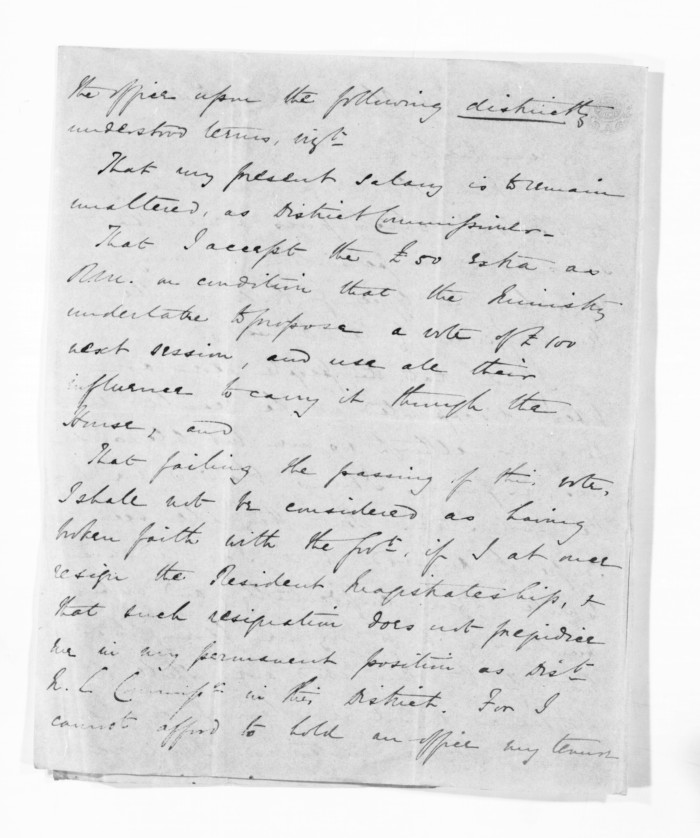 the office upon the following distinctly
understood terms, vizt
That my present salary is to remain
unaltered, as District Commissioner.
That I accept the £50 extra as
R.M. on condition that the Ministry
undertake to propose a vote of £100
next session, and use all their
influence to carry it through the
House, and
That failing the passing of this vote,
I shall not be considered as having
broken faith with the Govt, if I at once
resign the Resident Magistrateship, &
that such resignation does not prejudice
me in my permanent position as Distt
L. C in this District. For I
cannot afford to hold an office my tenure